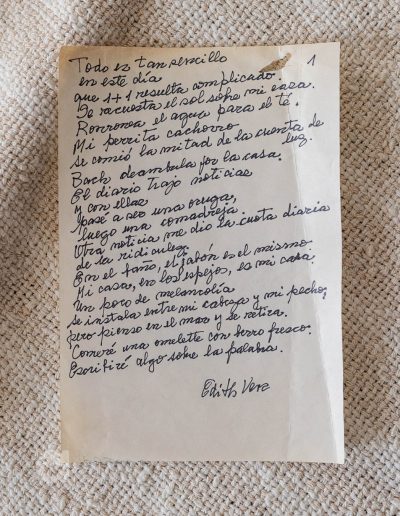 Todo es tan sencillo
1
en este día
que 1+1 resulta complicado.
Se recuesta el sol sobre mi casa.
Ronronea el agua para el té.
Mi perrita cachorro
se comió la mitad de la cuenta de luz.
Bach deambula por la casa.
El diario trajo noticias
y con ellas
pasé a ser una oruga,
luego una comadreja.
Otra noticia me dio la cuota diaria
de la ridiculez.
En el baño, el jabón es el mismo.
Mi casa, en los espejos, es mi casa.
Un poco de melancolía
se instala entre mi cabeza y mi pecho,
pero pienso en el mar y se retira.
Comeré una omelette con berro fresco.
Escribiré algo sobre la palabra.
Edith Vera